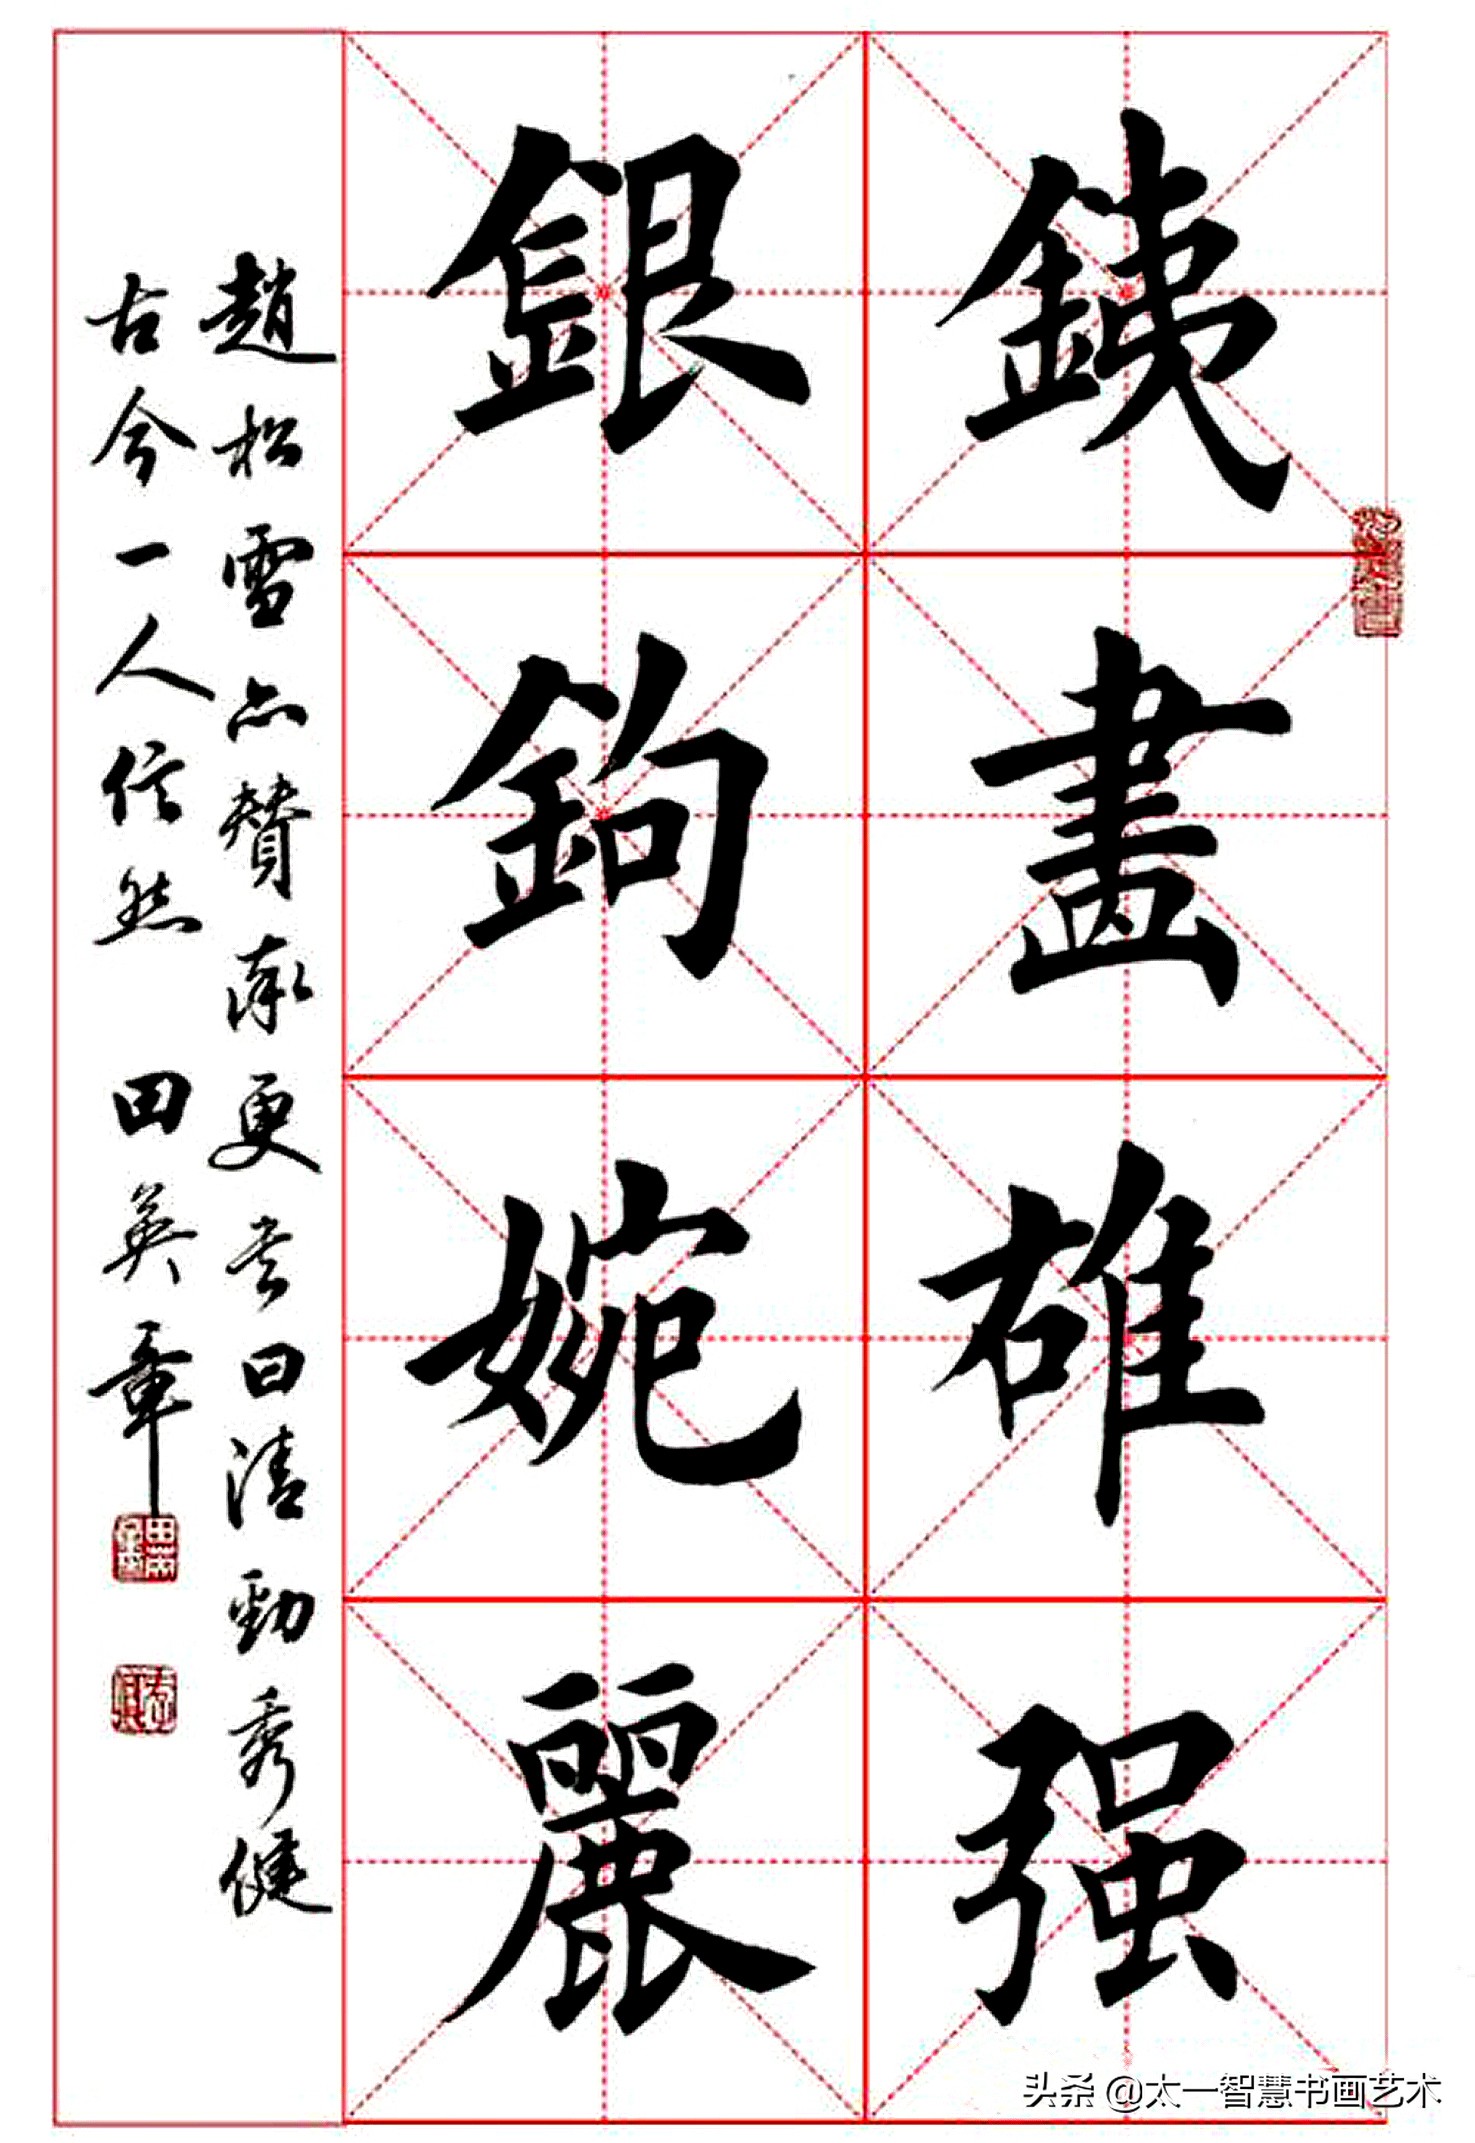 銕畫雄强
銀鉤婉麗
趙松雪亦贊率更書曰清勁秀健
古今一人信然 田英章
头条 @太一智慧书画艺术